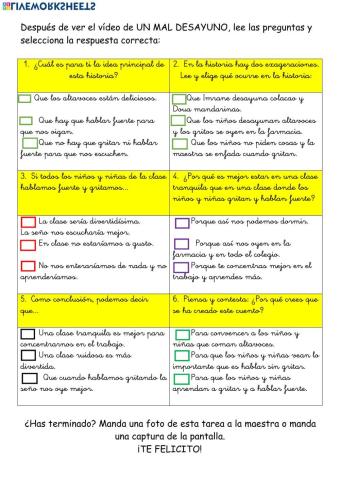 LIVEWORKSHEETS
Después de ver el vídeo de UN MAL DESAYUNO, lee las preguntas y
selecciona la respuesta correcta:
1. ¿Cuál es para ti la idea principal de
esta historia?
Que los altavoces están deliciosos.
Que hay que hablar fuerte para
que nos oigan.
Que no hay que gritar ni hablar
fuerte para que nos escuchen.
2. En la historia hay dos exageraciones.
Lee y elige qué ocurre en la historia:
Que Imrane desayuna colacao y
Doua mandarinas.
Que los niños desayunan altavoces
y los gritos se oyen en la farmacia.
Que los niños no piden cosas y la
maestra se enfada cuando gritan.
3. Si todos los niños y niñas de la clase
habláramos fuerte y gritamos...
La clase sería divertidísima.
La seño nos escucharía mejor.
En clase no estaríamos a gusto.
No nos enteraríamos de nada y no
aprenderíamos.
4. ¿Por qué es mejor estar en una clase
tranquila que en una clase donde los
niños y niñas gritan y hablan fuerte?
Porque así nos podemos dormir.
Porque así nos oyen en la
farmacia y en todo el colegio.
Porque te concentras mejor en el
trabajo y aprendes más.
5. Como conclusión, podemos decir
que...
Una clase tranquila es mejor para
concentrarnos en el trabajo.
Una clase ruidosa es más
divertida.
Que cuando hablamos gritando la
seño nos oye mejor.
6. Piensa y contesta: ¿Por qué crees que
se ha creado este cuento?
Para convencer a los niños y
niñas que coman altavoces.
Para que los niños y niñas vean lo
importante que es hablar sin gritar.
Para que los niños y niñas
aprendan a gritar y a hablar fuerte.
¿Has terminado? Manda una foto de esta tarea a la maestra o manda
una captura de la pantalla.
¡TE FELICITO!